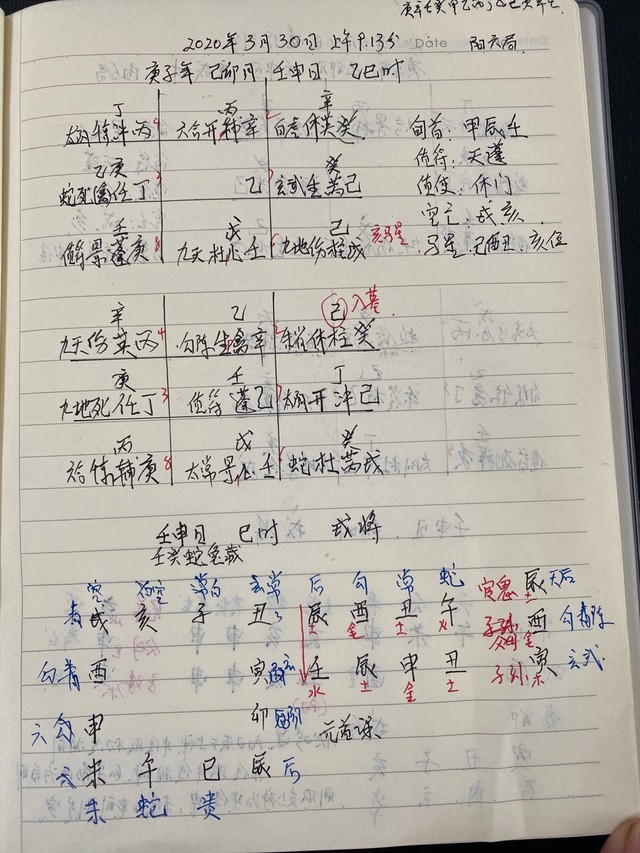 2020年3月30日 上午9.13分 Date 阳六局
庚子年 己卯月 壬申日 乙巳时
丁 丙 辛
太阴惊冲丙 六合开辅辛 白虎休英癸 旬首：甲辰壬
乙庚 癸 值符：天蓬
蛇死禽任丁 乙 玄武生芮己 值使：休门
壬 戊 己 空亡：戌亥
值符景蓬庚 九天杜心壬 九地伤柱戊 亥马星 马星：巳酉丑：亥位
辛 乙 己 入墓
九天伤英丙 勾陈生禽辛 朱雀休柱癸
庚 壬 丁
九地死任丁 值符蓬乙 太阴开冲己
丙 戊 癸
六合惊辅庚 太常景心壬 蛇杜芮戊
壬申日 巳时 戌将
壬癸蛇兔藏
空 白 常 玄 后 勾 常 蛇
青 戌 亥 子 丑 辰 酉 丑 午 辰 天后
土 金 土 火 土
酉 勾陈
金
勾青 酉 寅 壬 辰 申 丑 子孙 寅 玄武
水 土 金 土 木
六勾 申 卯 阴 元首课
未 午 巳 辰 后
朱 蛇 贵